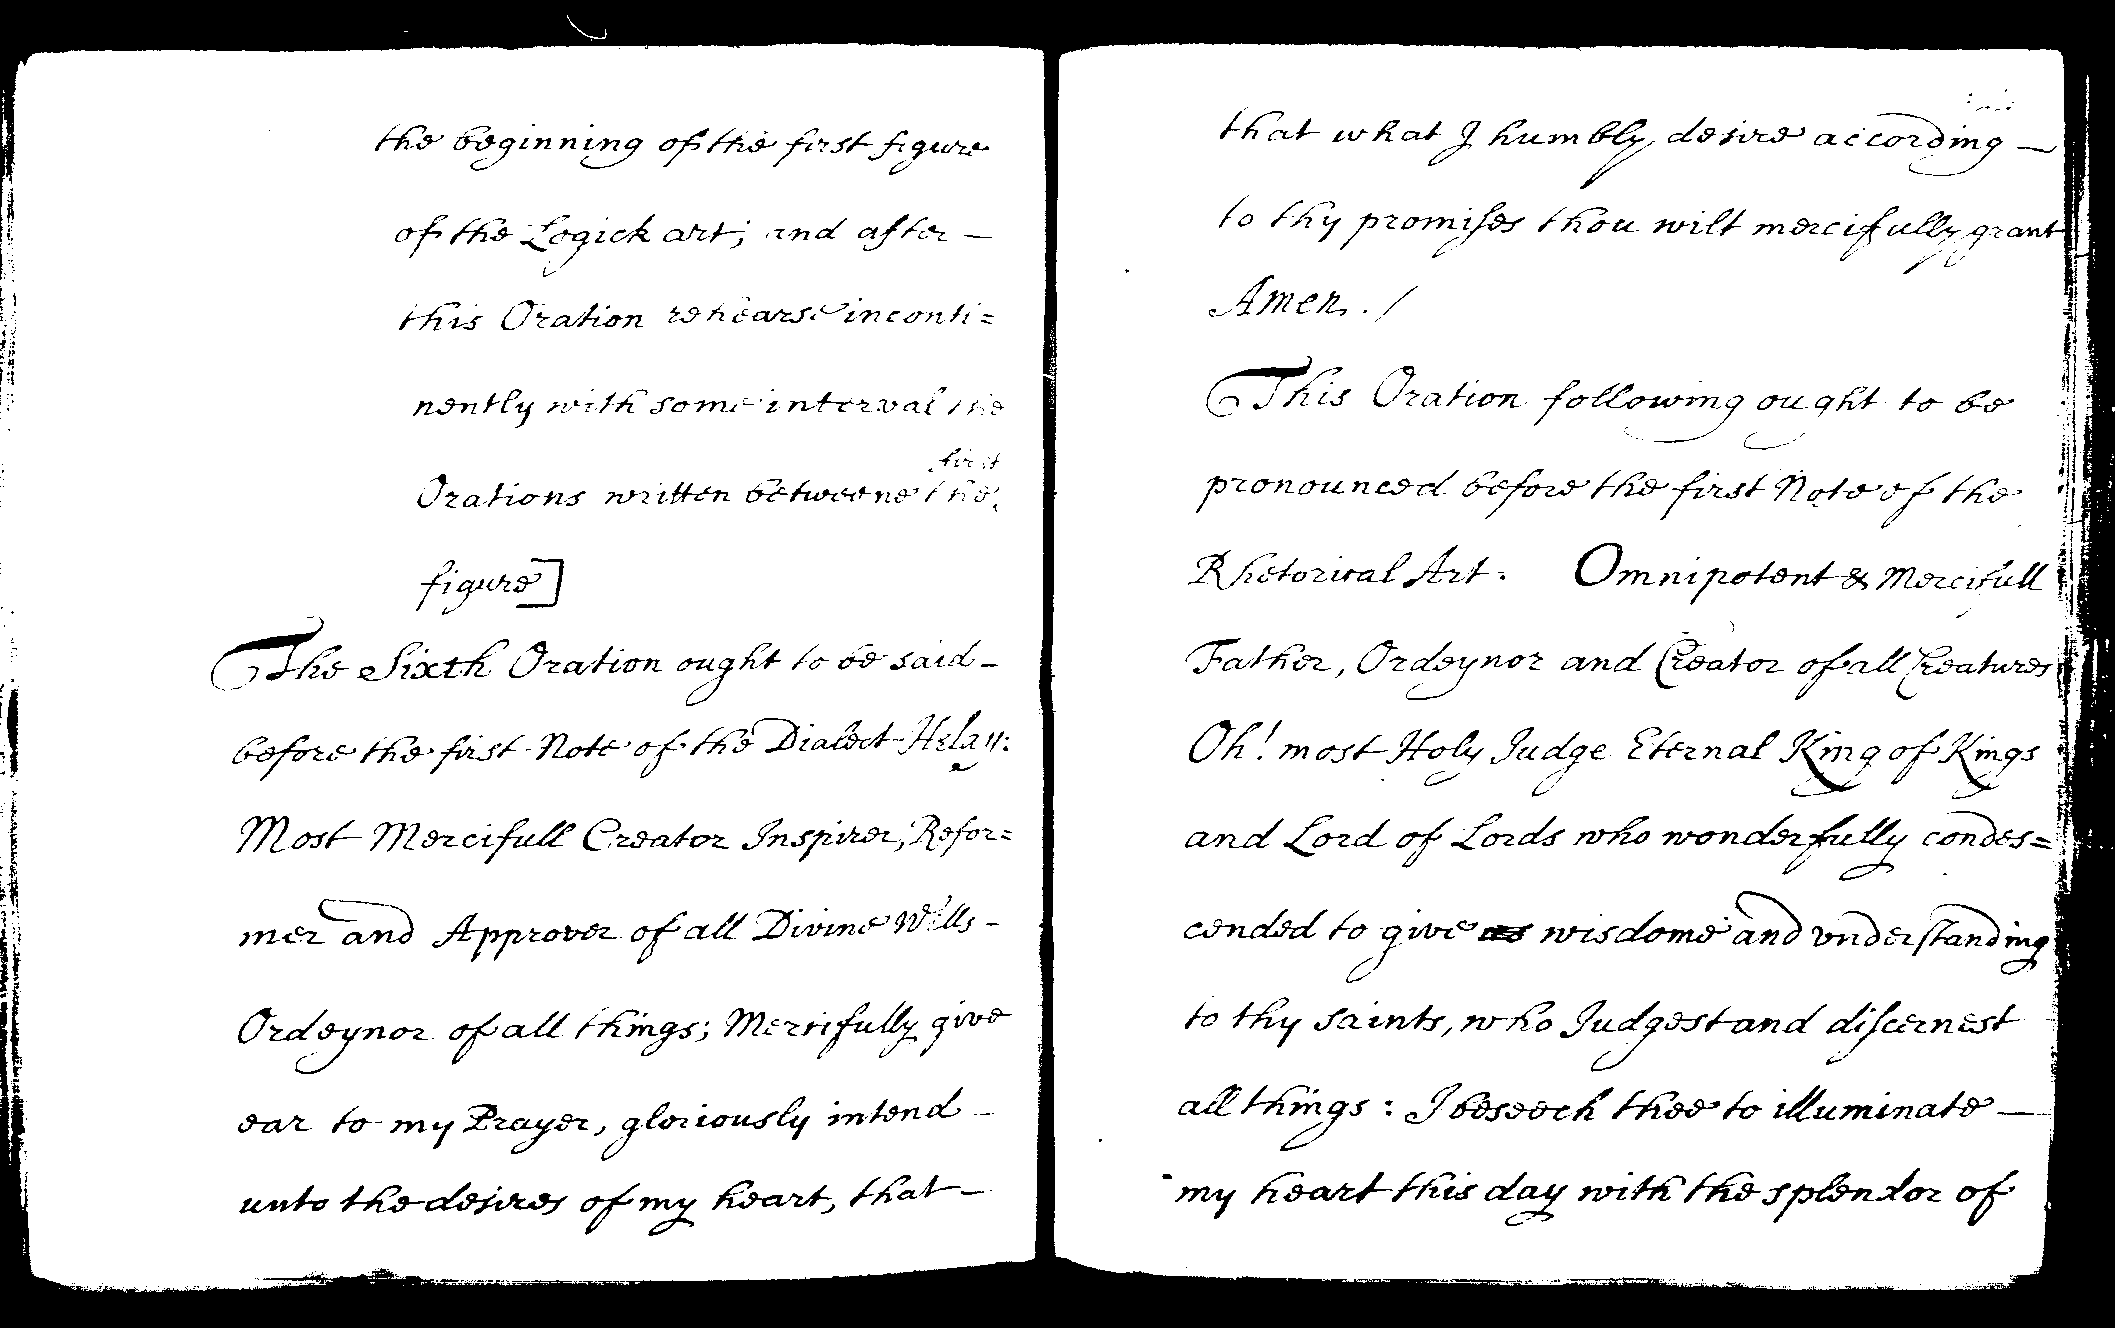 the beginning of the first figure
of the Logick art; and after —
this Oration rehearse inconti=
nently with some interval the
first
Orations written betweene the
figure]
The Sixth Oration ought to be said –
before the first Note of the Dialect
Most Mercifull Creator Inspirer, Refor=
mer and Approver of all Divine Wills –
Ordeynor of all things; Mercifully give
ear to my Prayer, gloriously intend –
unto the desires of my heart, that –
that what I humbly desire according —
to thy promises thou wilt mercifully grant
Amen. /
This Oration following ought to be
pronounced before the first Note of the
Rhetorical Art. Omnipotent & Mercifull
Father, Ordeynor and Creator of all Creatures
Oh! most Holy Judge Eternal King of Kings
and Lord of Lords who wonderfully condes=
cended to give wisdome and vnderstanding
to thy saints, who Judgest and discernest
all things: I beseech thee to illuminate —
my heart this day with the splendor of